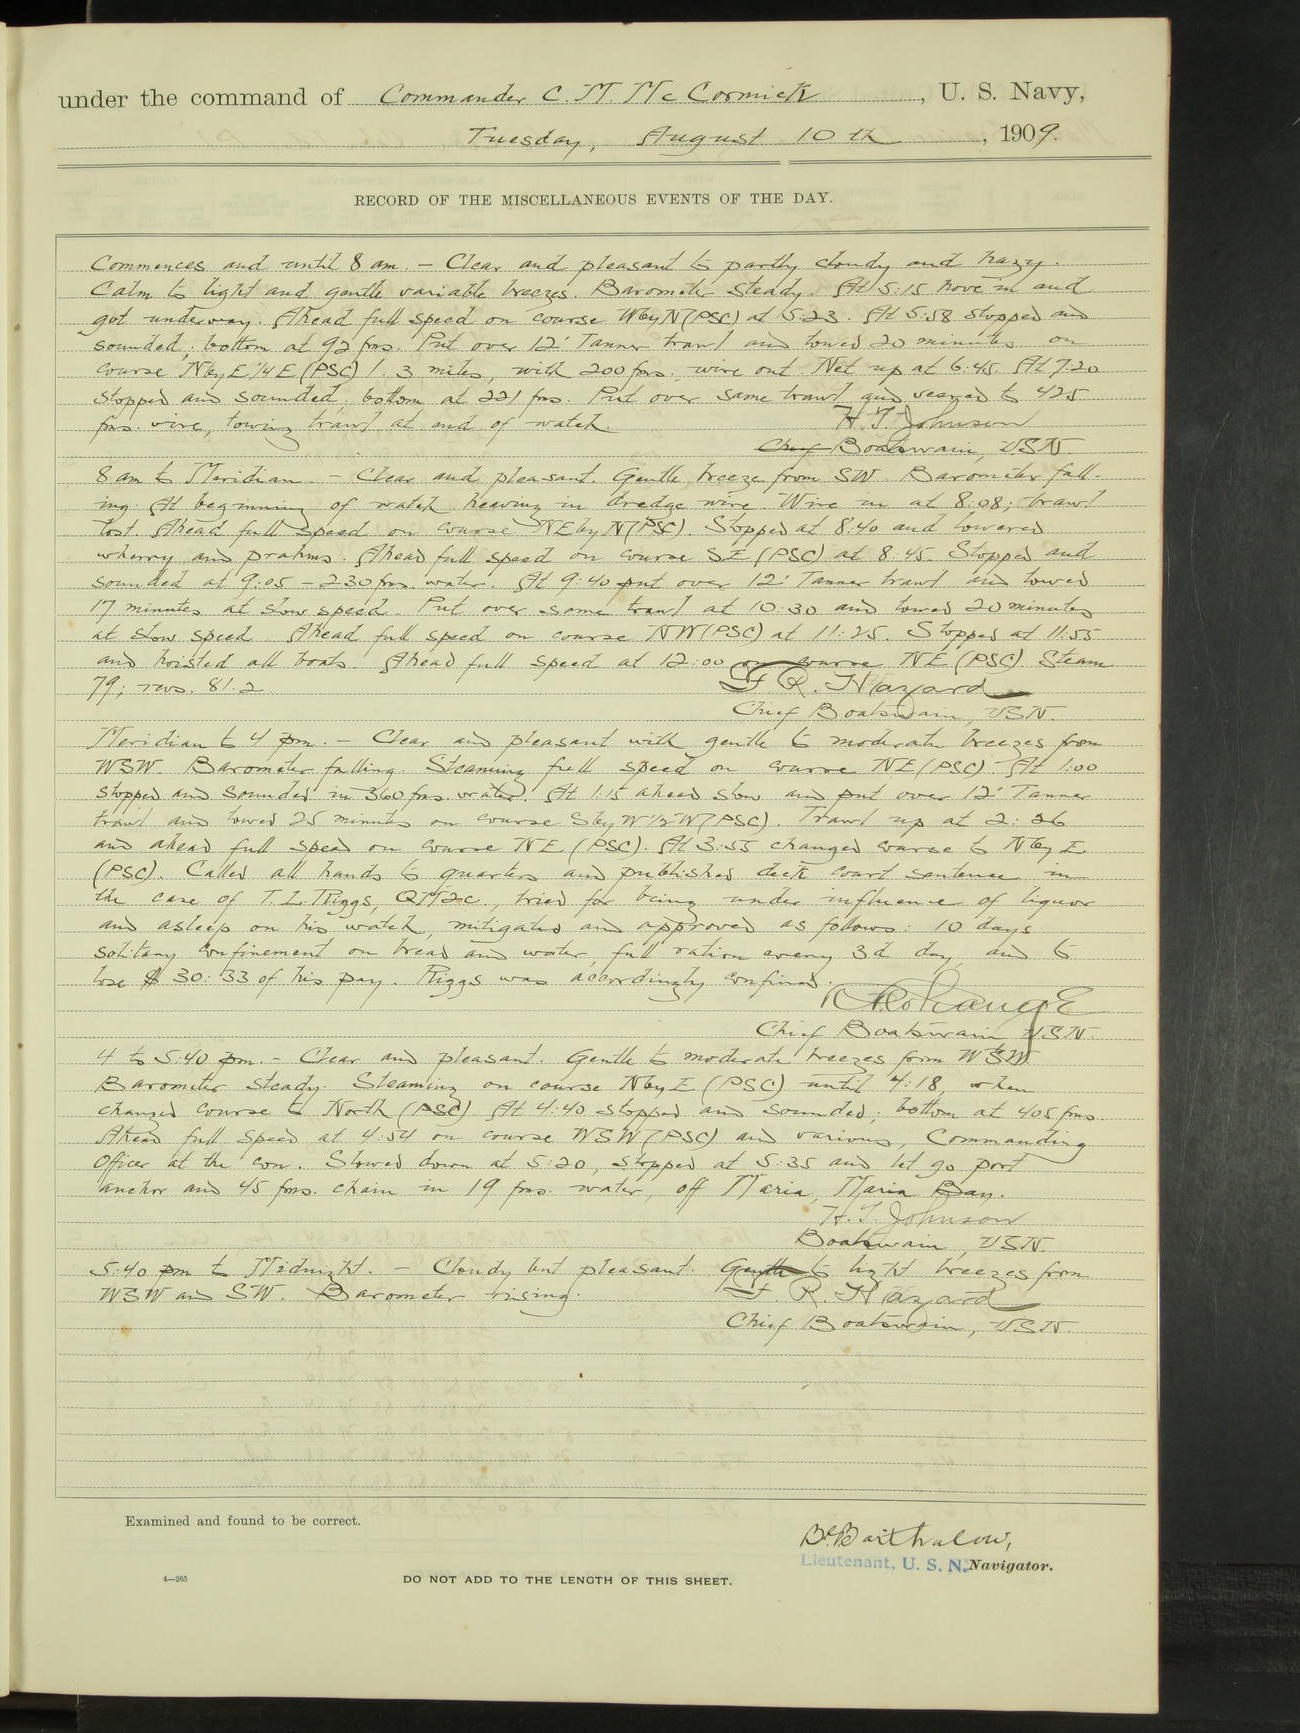 under the command of Commander C. M. McCormick, U. S. Navy,
Tuesday, August 10th, 1909.
RECORD OF THE MISCELLANEOUS EVENTS OF THE DAY.
Commences and until 8 am. – Clear and pleasant to partly cloudy and hazy.
Calm to light and gentle variable breezes. Barometer steady. At 5:15 hove in and
got underway. Ahead full speed on course WbyN (PSC) at 5:23. At 5:58 stopped and
sounded; bottom at 92 fms. Put over 12' Tanner trawl and towed 20 minutes on
course NbyE¼E (PSC) 1.3 miles, with 200 fms. wire out. Net up at 6:45. At 7:20
stopped and sounded; bottom at 221 fms. Put over same trawl and veered to 425
fms. wire, towing trawl at end of watch. H. T. Johnson
Chief Boatswain, USN.
8 am to Meridian. – Clear and pleasant. Gentle breeze from SW. Barometer fall-
ing. At beginning of watch heaving in dredge wire. Wire in at 8:08; trawl
lost. Ahead full speed on course NEbyN (PSC). Stopped at 8:40 and lowered
wherry and prahms. Ahead full speed on course SE (PSC) at 8:45. Stopped and
sounded at 9:05 – 230 fms. water. At 9:40 put over 12' Tanner trawl and towed
17 minutes at slow speed. Put over same trawl at 10:30 and towed 20 minutes
at slow speed. Ahead full speed on course NW (PSC) at 11:25. Stopped at 11:55
and hoisted all boats. Ahead full speed at 12:00 on course NE (PSC). Steam
79; revs. 81.2 F. R. Hazard
Chief Boatswain, USN.
Meridian to 4 pm. – Clear and pleasant with gentle to moderate breezes from
WSW. Barometer falling. Steaming full speed on course NE (PSC). At 1:00
stopped and sounded in 360 fms. water. At 1:15 ahead slow and put over 12' Tanner
trawl and towed 25 minutes on course SbyW½W (PSC). Trawl up at 2:26
and ahead full speed on course NE (PSC). At 3:55 changed course to NbyE
(PSC). Called all hands to quarters and published deck court sentence in
the case of T. L. Riggs, QM2c., tried for being under influence of liquor
and asleep on his watch, mitigated and approved as follows: 10 days
solitary confinement on bread and water, full ration every 3d day, and to
lose $30:33 of his pay. Riggs was accordingly confined.
Chief Boatswain USN.
4 to 5:40 pm. – Clear and pleasant. Gentle to moderate breezes from WSW.
Barometer steady. Steaming on course NbyE (PSC) until 4:18, when
changed course to North (PSC) At 4:40 stopped and sounded; bottom at 405 fms.
Ahead full speed at 4:54 on course WSW (PSC) and various, Commanding
Officer at the con. Slowed down at 5:20, stopped at 5:35 and let go port
anchor and 45 fms. chain in 19 fms. water, off Maria, Maria Bay.
H. T. Johnson
Boatswain, USN.
5:40 pm to Midnight. – Cloudy but pleasant. Gentle to light breezes from
WSW and SW. Barometer rising. F. R. Hazard
Chief Boatswain, USN.
Examined and found to be correct.
Barthalow,
Lieutenant, U. S. N. Navigator.
4—265
DO NOT ADD TO THE LENGTH OF THIS SHEET.